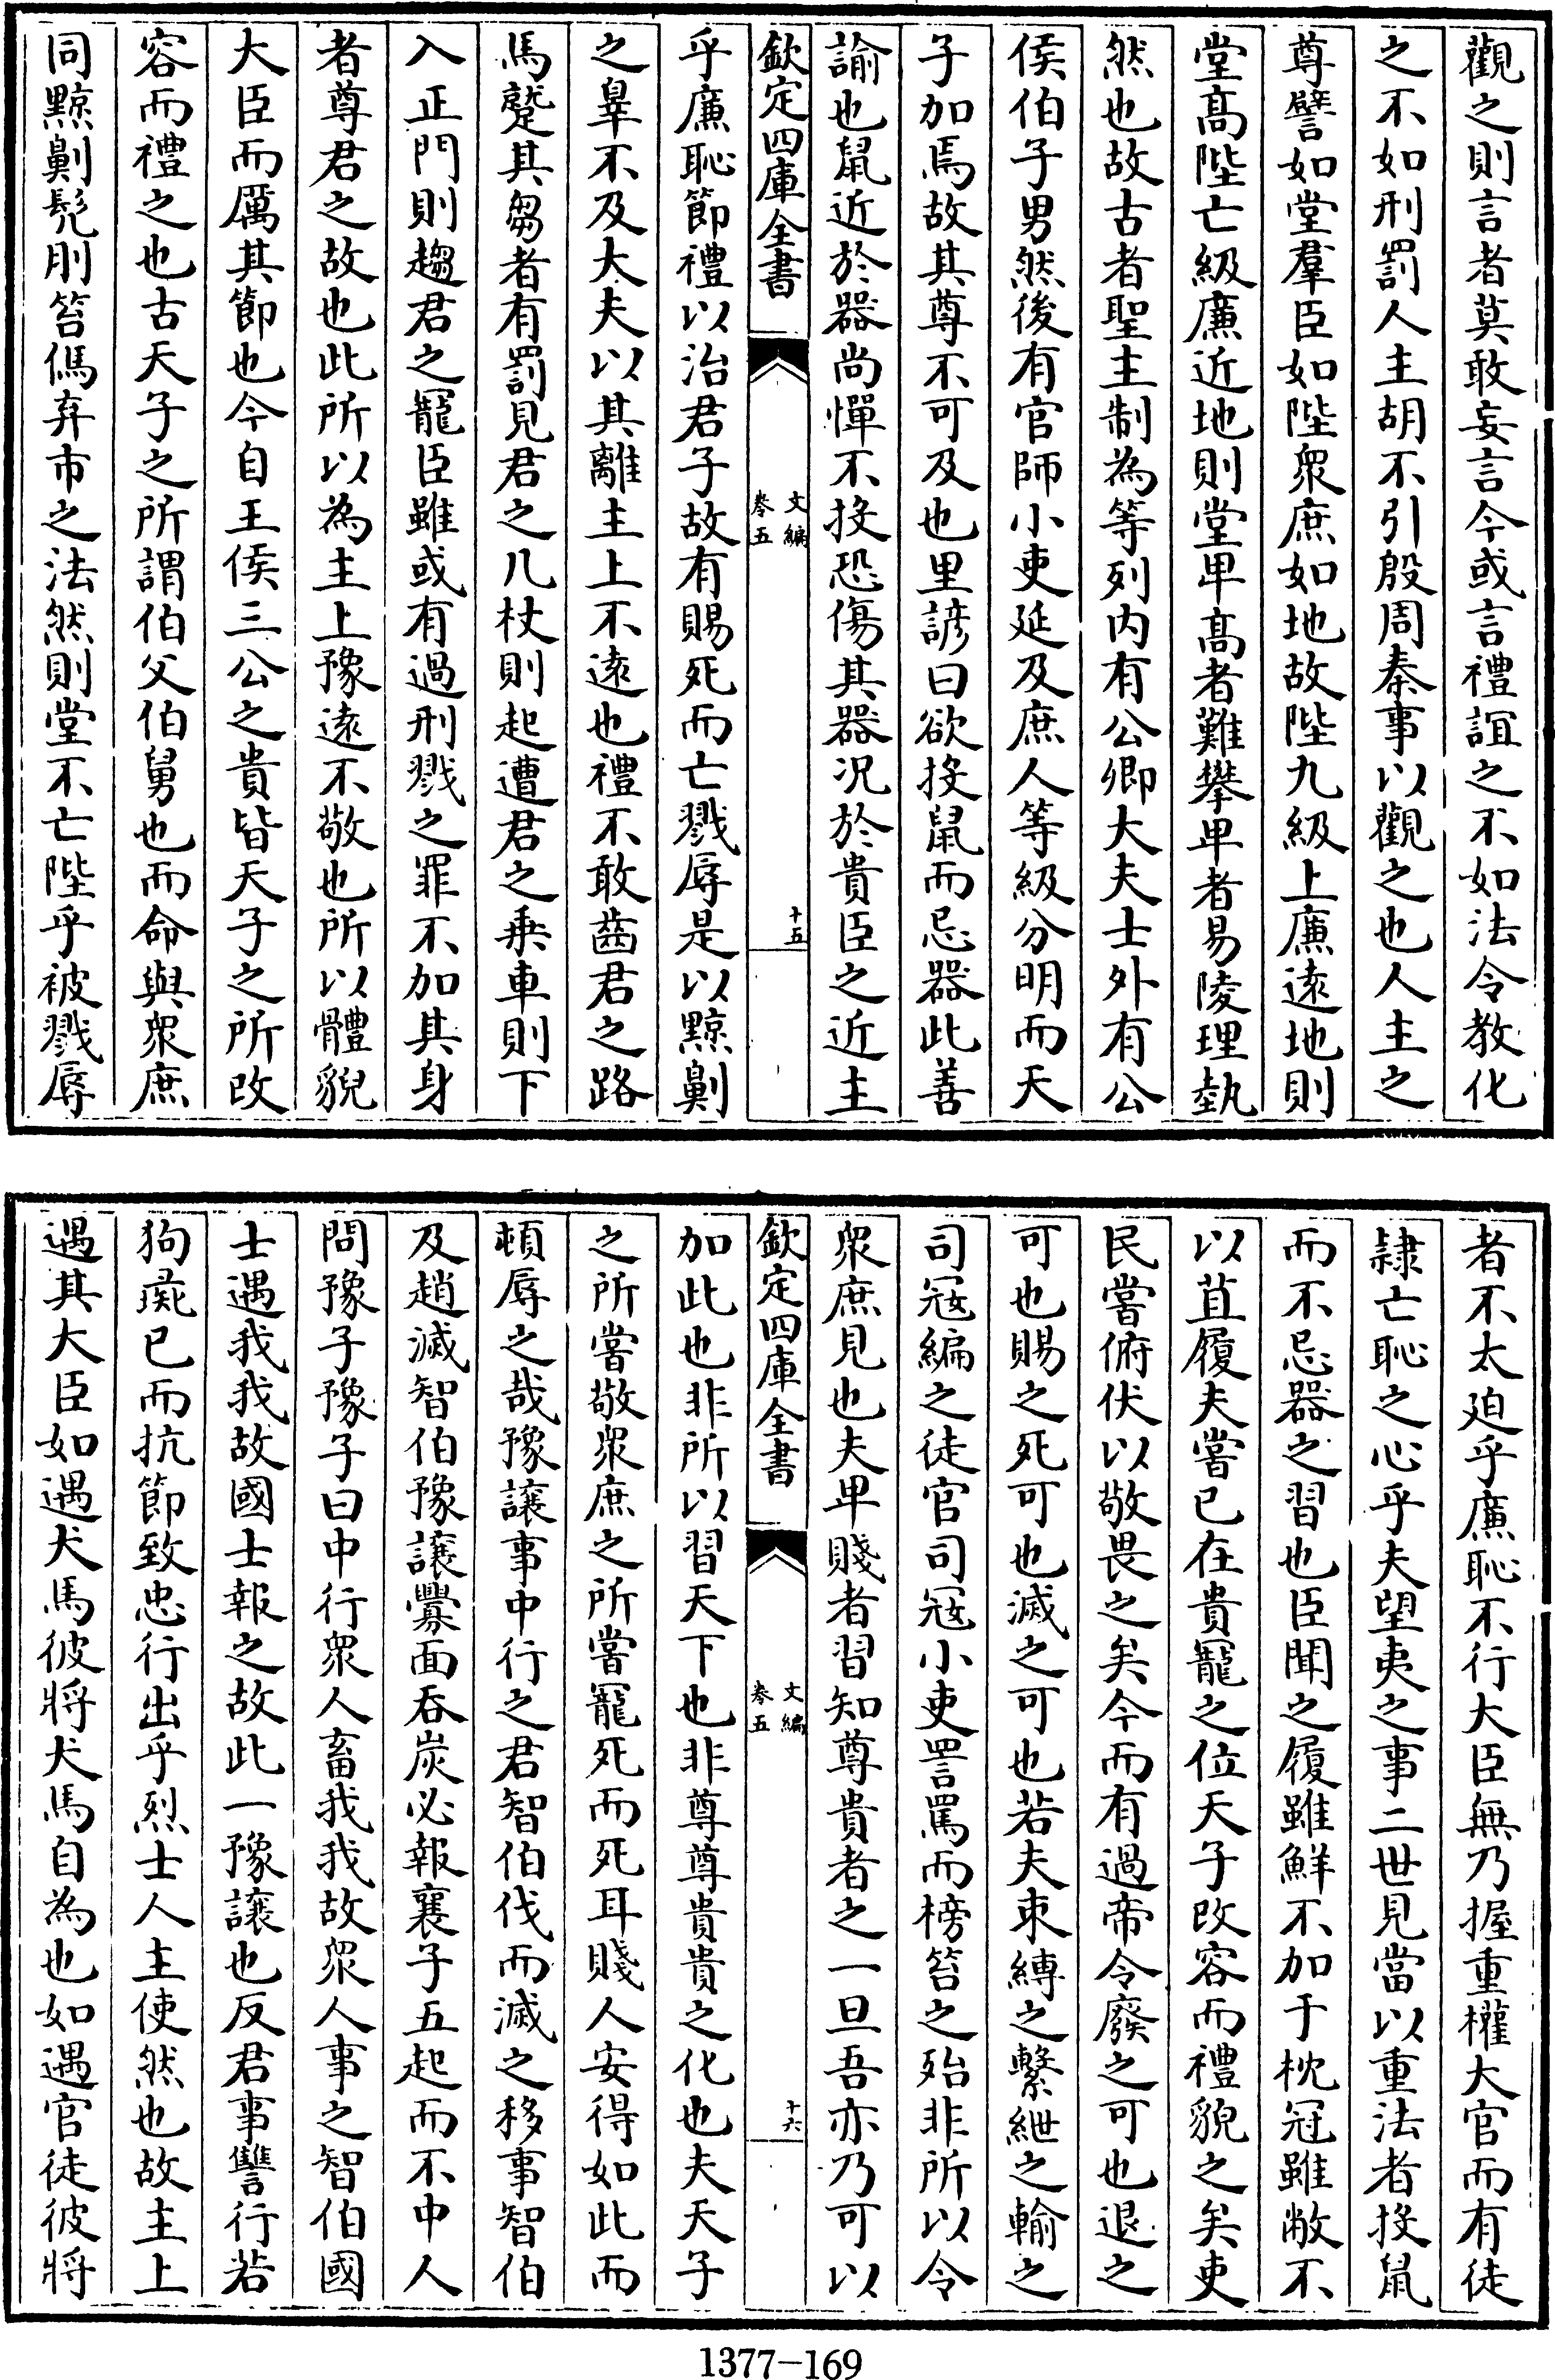 觀之則言者莫敢妄言今或言禮誼之不如法令教化
之不如刑罰人主胡不引殷周秦事以觀之也人主之
尊譬如堂羣臣如陛衆庶如地故陛九級上廉逺地則
堂髙陛亡級廉近地則堂卑髙者難攀卑者易陵理埶
然也故古者聖主制為等列内有公卿大夫士外有公
侯伯子男然後有官師小吏延及庶人等級分明而天
子加焉故其尊不可及也里諺曰欲投鼠而忌器此善
諭也鼠近於器尚憚不投恐傷其器况於貴臣之近主
欽定四庫全書
文編
卷五
十五
乎廉恥節禮以治君子故有賜死而亡戮辱是以黥劓
之辠不及大夫以其離主上不逺也禮不敢齒君之路
馬蹵其芻者有罰見君之几杖則起遭君之乗車則下
入正門則趨君之寵臣雖或有過刑戮之罪不加其身
者尊君之故也此所以為主上豫逺不敬也所以體貌
大臣而厲其節也今自王侯三公之貴皆天子之所改
容而禮之也古天子之所謂伯父伯舅也而命與衆庶
同黥劓髠刖笞傌弃市之法然則堂不亡陛乎被戮辱
者不太廹乎廉恥不行大臣無乃握重權大官而有徒
隷亡恥之心乎夫望夷之事二世見當以重法者投鼠
而不忌器之習也臣聞之履雖鮮不加于枕冠雖敝不
以苴履夫嘗已在貴寵之位天子改容而禮貌之矣吏
民嘗俯伏以敬畏之矣今而有過帝令廢之可也退之
可也賜之死可也滅之可也若夫束縛之繫紲之輸之
司冦編之徒官司冦小吏詈罵而榜笞之殆非所以令
衆庶見也夫卑賤者習知尊貴者之一旦吾亦乃可以
欽定四庫全書
文編
卷五
十六
加此也非所以習天下也非尊尊貴貴之化也夫天子
之所嘗敬衆庶之所嘗寵死而死耳賤人安得如此而
頓辱之哉豫讓事中行之君智伯伐而滅之移事智伯
及趙滅智伯豫讓釁面吞炭必報襄子五起而不中人
問豫子豫子曰中行衆人畜我我故衆人事之智伯國
士遇我我故國士報之故此一豫讓也反君事讐行若
狗彘已而抗節致忠行出乎烈士人主使然也故主上
遇其大臣如遇犬馬彼將犬馬自為也如遇官徒彼將
1377-169